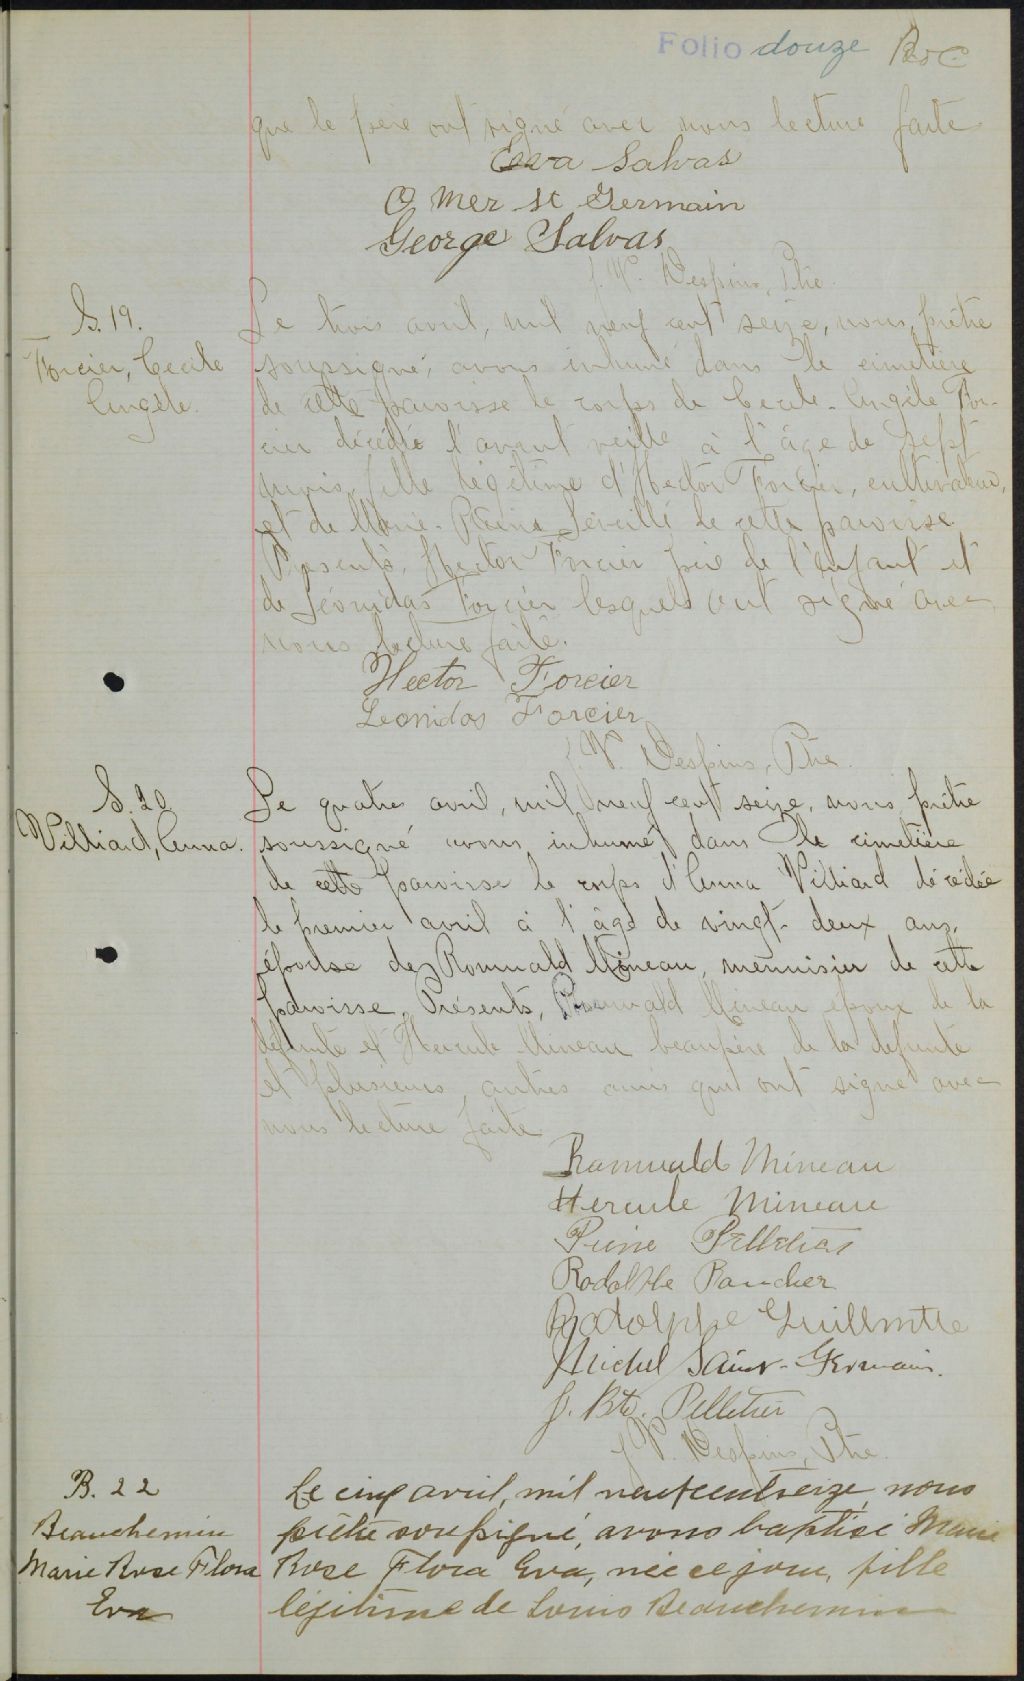 Folio douze
que le père ont signé avec nous lecture faite
Eva Salvas
O mer St Germain
George Salvas
J. V. Despins, Ptre.
S. 19.
Forcier, Cecile
Angèle.
Le trois avril, mil neuf cent seize, nous, prêtre
soussigné, avons inhumé dans le cimetière
de cette paroisse le corps de Cecile-Angèle For-
cier décédée l'avant veille à l'âge de sept
mois, fille légitime d'Hector Forcier, cultivateur,
et de Marie-Reine Léveillé de cette paroisse
Présents, Hector Forcier père de l'enfant et
de Léonidas Forcier lesquels ont signé avec
nous lecture faite.
Hector Forcier
Leonidas Forcier
J. V. Despins, Ptre.
S. 20
Villiard, Anna.
Le quatre avril, mil neuf cent seize, nous prêtre
soussigné avons inhumé dans le cimetière
de cette paroisse le corps d'Anna Villiard décédée
le premier avril à l'âge de vingt-deux ans,
épouse de Romuald Mineau, menuisier de cette
paroisse, Présents, Romuald Mineau époux de la
défunte et Hercule Mineau beaupère de la défunte
et plusieurs autres amis qui ont signé avec
nous lecture faite
Romuald Mineau
Hercule Mineau
Pierre
Rodolphe
Rodolphe Guillmtte
Michel Saint-Germain.
J. Bte. Pelletier
J. V. Despins, Ptre.
B. 22
Beauchemin
Marie Rose Flora
Eva
Le cinq avril, mil neuf cent seize, nous
prêtre soussigné, avons baptisé Marie
Rose Flora Eva, née ce jour, fille
légitime de Louis Beauchemin